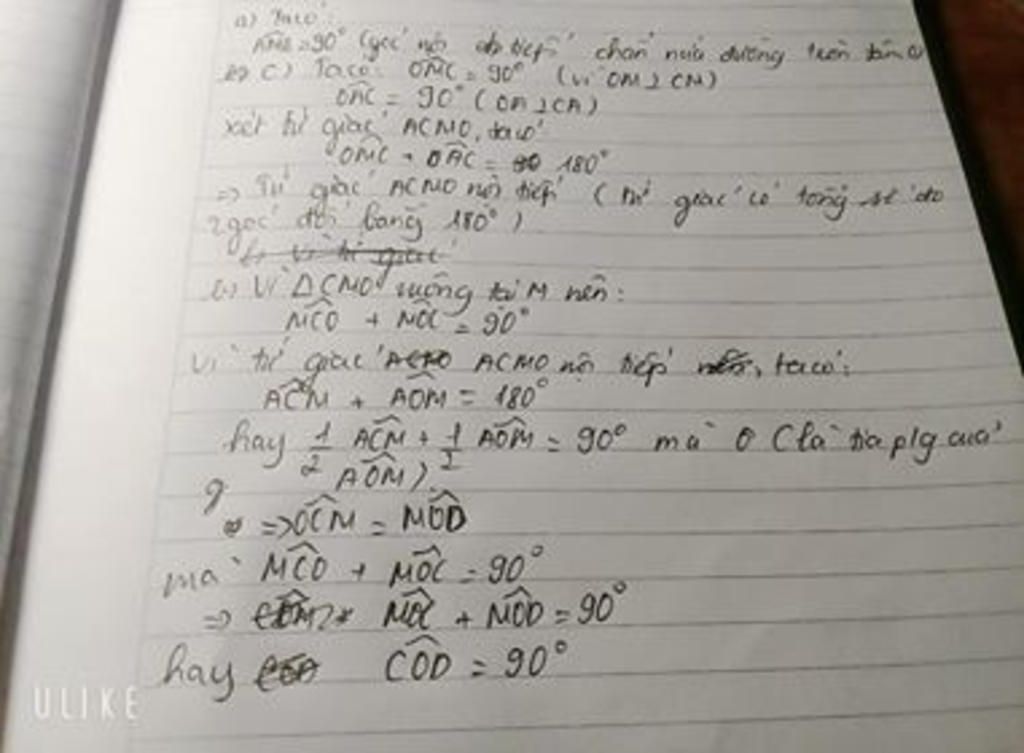 a) Ta có:
AMB = 90° (góc nội tiếp chắn nửa đường tròn tâm O
b) c) Ta có: OMC = 90° (vì OM ⊥ CM)
OAC = 90° (OA ⊥ CA)
xét tứ giác ACMO, ta có
OMC + OAC = 180°
=> Tứ giác ACMO nội tiếp (tứ giác có tổng số đo
2 góc đối bằng 180°)
b) Vì ΔCMO vuông tại M nên:
MCO + MOC = 90°
Vì tứ giác ACMO nội tiếp, ta có:
ACM + AOM = 180°
hay 1/2 ACM + 1/2 AOM = 90° mà OC là tia p/g của
AOM).
=> OCM = MOD
mà MCO + MOC = 90°
=> MOC + MOD = 90°
hay COD = 90°
ULIKE